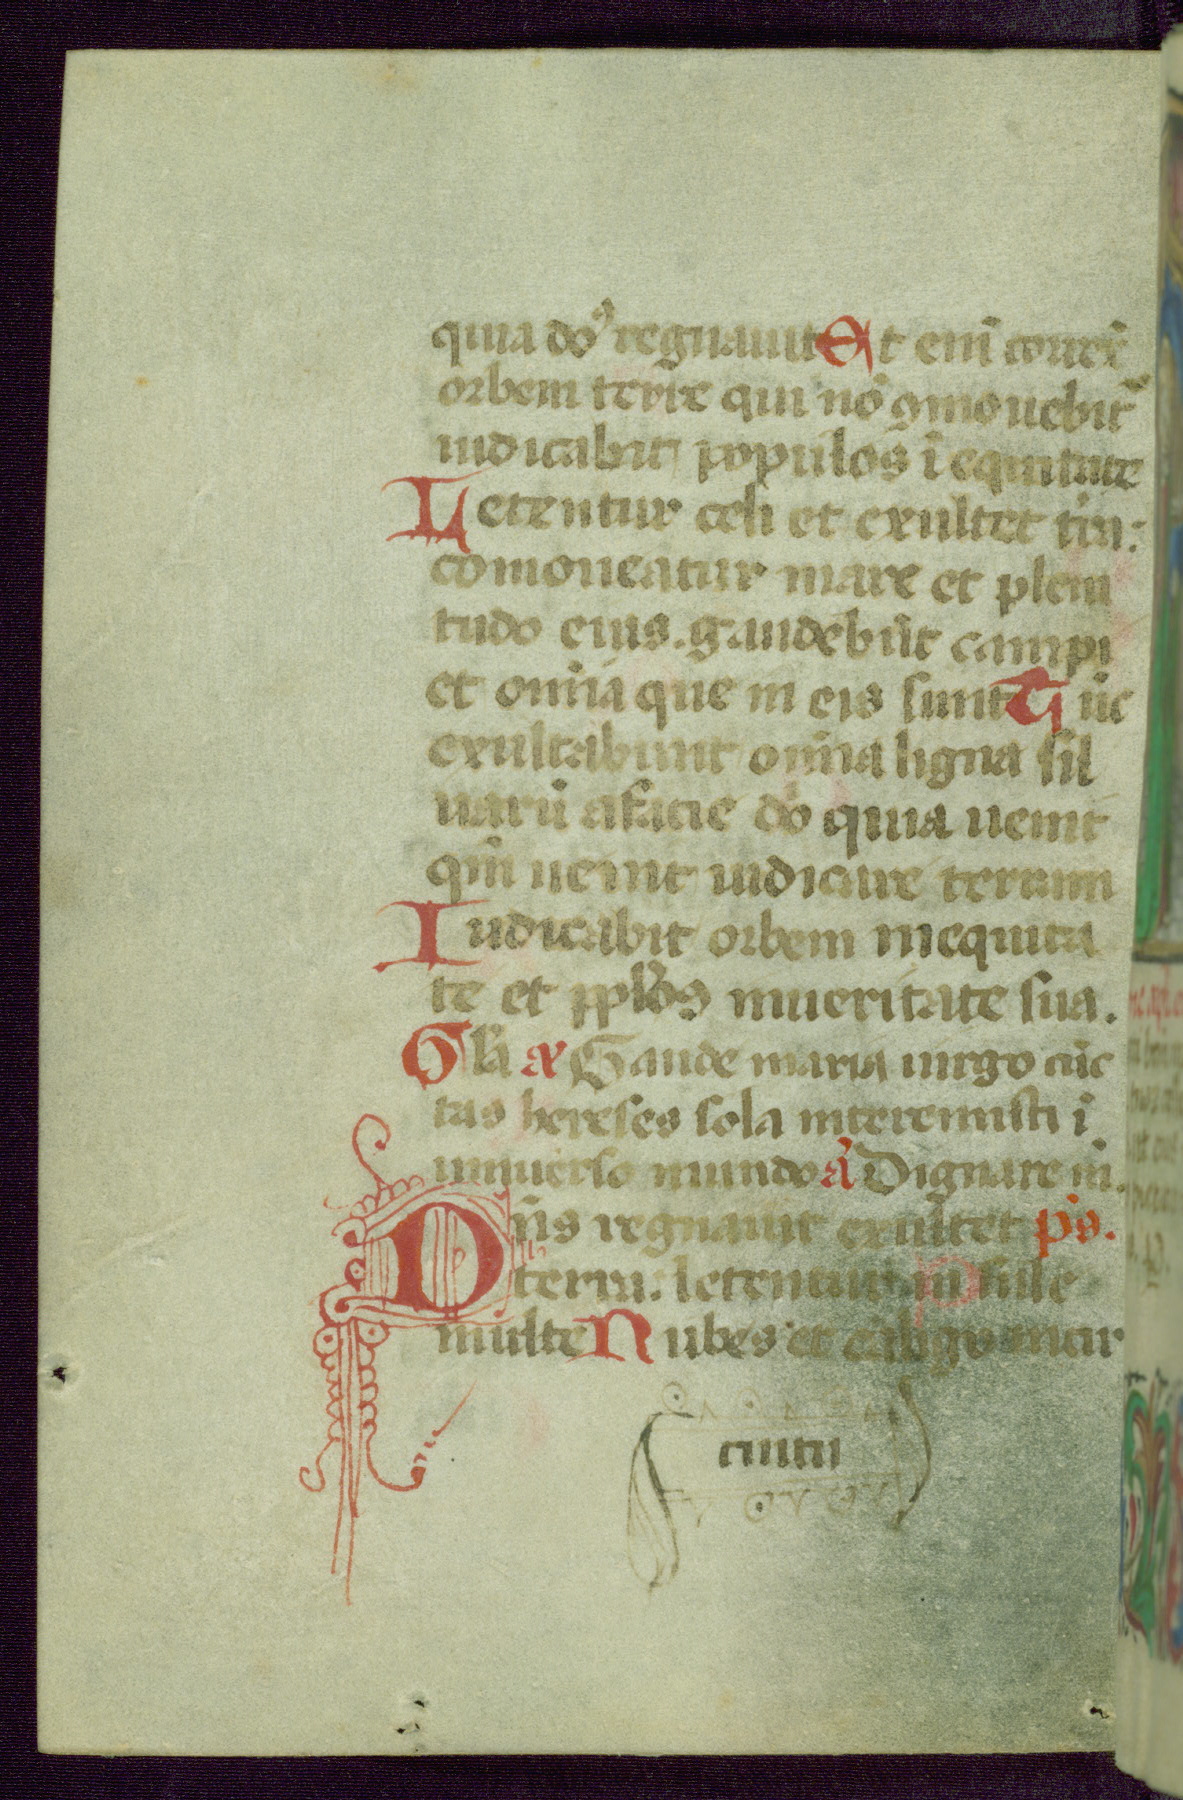 quia do᷒ regnauit Et eni̅ correx̅
orbem terre qui no̅ ꝯmouebit᷑
iudicabit populos i̅ equitate
Letentur celi et exultet t̅ra:
comoueatur mare et pleni
tudo eius. gaudebu̅t campi
et omi̅a que in eis sunt Tu̅c
exultabunt omi̅a ligna sil
uaru̅ afacie do̅ quia uenit
qm̅ uenit iudicare terram
Iudicabit orbem inequita
te et pp̅l̅os inueritate sua.
Gl̅a a̅ Gaude maria uirgo cu̅c
tas hereses sola interemisti i̅
uniuerso mundo a̅ Dignare m̅.
Dn̅s regnauit exultet ps̅.
terra: letentur in sule
multe Nubes et caligo incir
cuitu